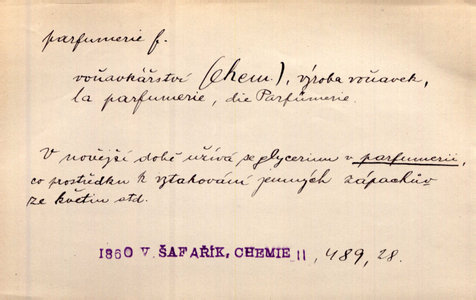 parfumerie f.
voňavkářství (chem.), výroba voňavek,
la parfumerie, die Parfümerie.
V novější době užívá se glycerinu v parfumerii,
co prostředku k vztahování jemných zápachův
ze květin std.
1860 V. ŠAFAŘÍK, CHEMIE II, 489, 28.